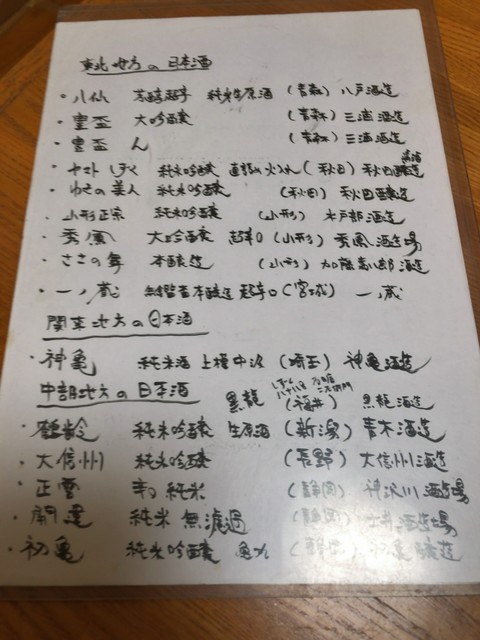 東北地方の日本酒
・八仙 芳醇超辛 純米生原酒 (青森) 八戸酒造
・豊盃 大吟醸 (青森) 三浦酒造
・豊盃 ん (青森) 三浦酒造
・ヤマトしずく 純米吟醸 直詰め火入れ (秋田) 秋田清酒
・ゆきの美人 純米吟醸 (秋田) 秋田醸造
・山形正宗 純米吟醸 (山形) 水戸部酒造
・秀鳳 大吟醸 超辛口 (山形) 秀鳳酒造場
・ささの舞 本醸造 (山形) 加藤嘉八郎酒造
・一ノ蔵 無鑑査本醸造 超辛口 (宮城) 一ノ蔵
関東地方の日本酒
・神亀 純米酒 上槽中汲 (埼玉) 神亀酒造
中部地方の日本酒
黒龍 (福井) 黒龍酒造
・鶴齢 純米吟醸 生原酒 (新潟) 青木酒造
・大信州 純米吟醸 (長野) 大信州酒造
・正雪 純米 (静岡) 神沢川酒造場
・開運 純米 無濾過 (静岡) 土井酒造場
・初亀 純米吟醸 亀丸 (静岡) 初亀醸造